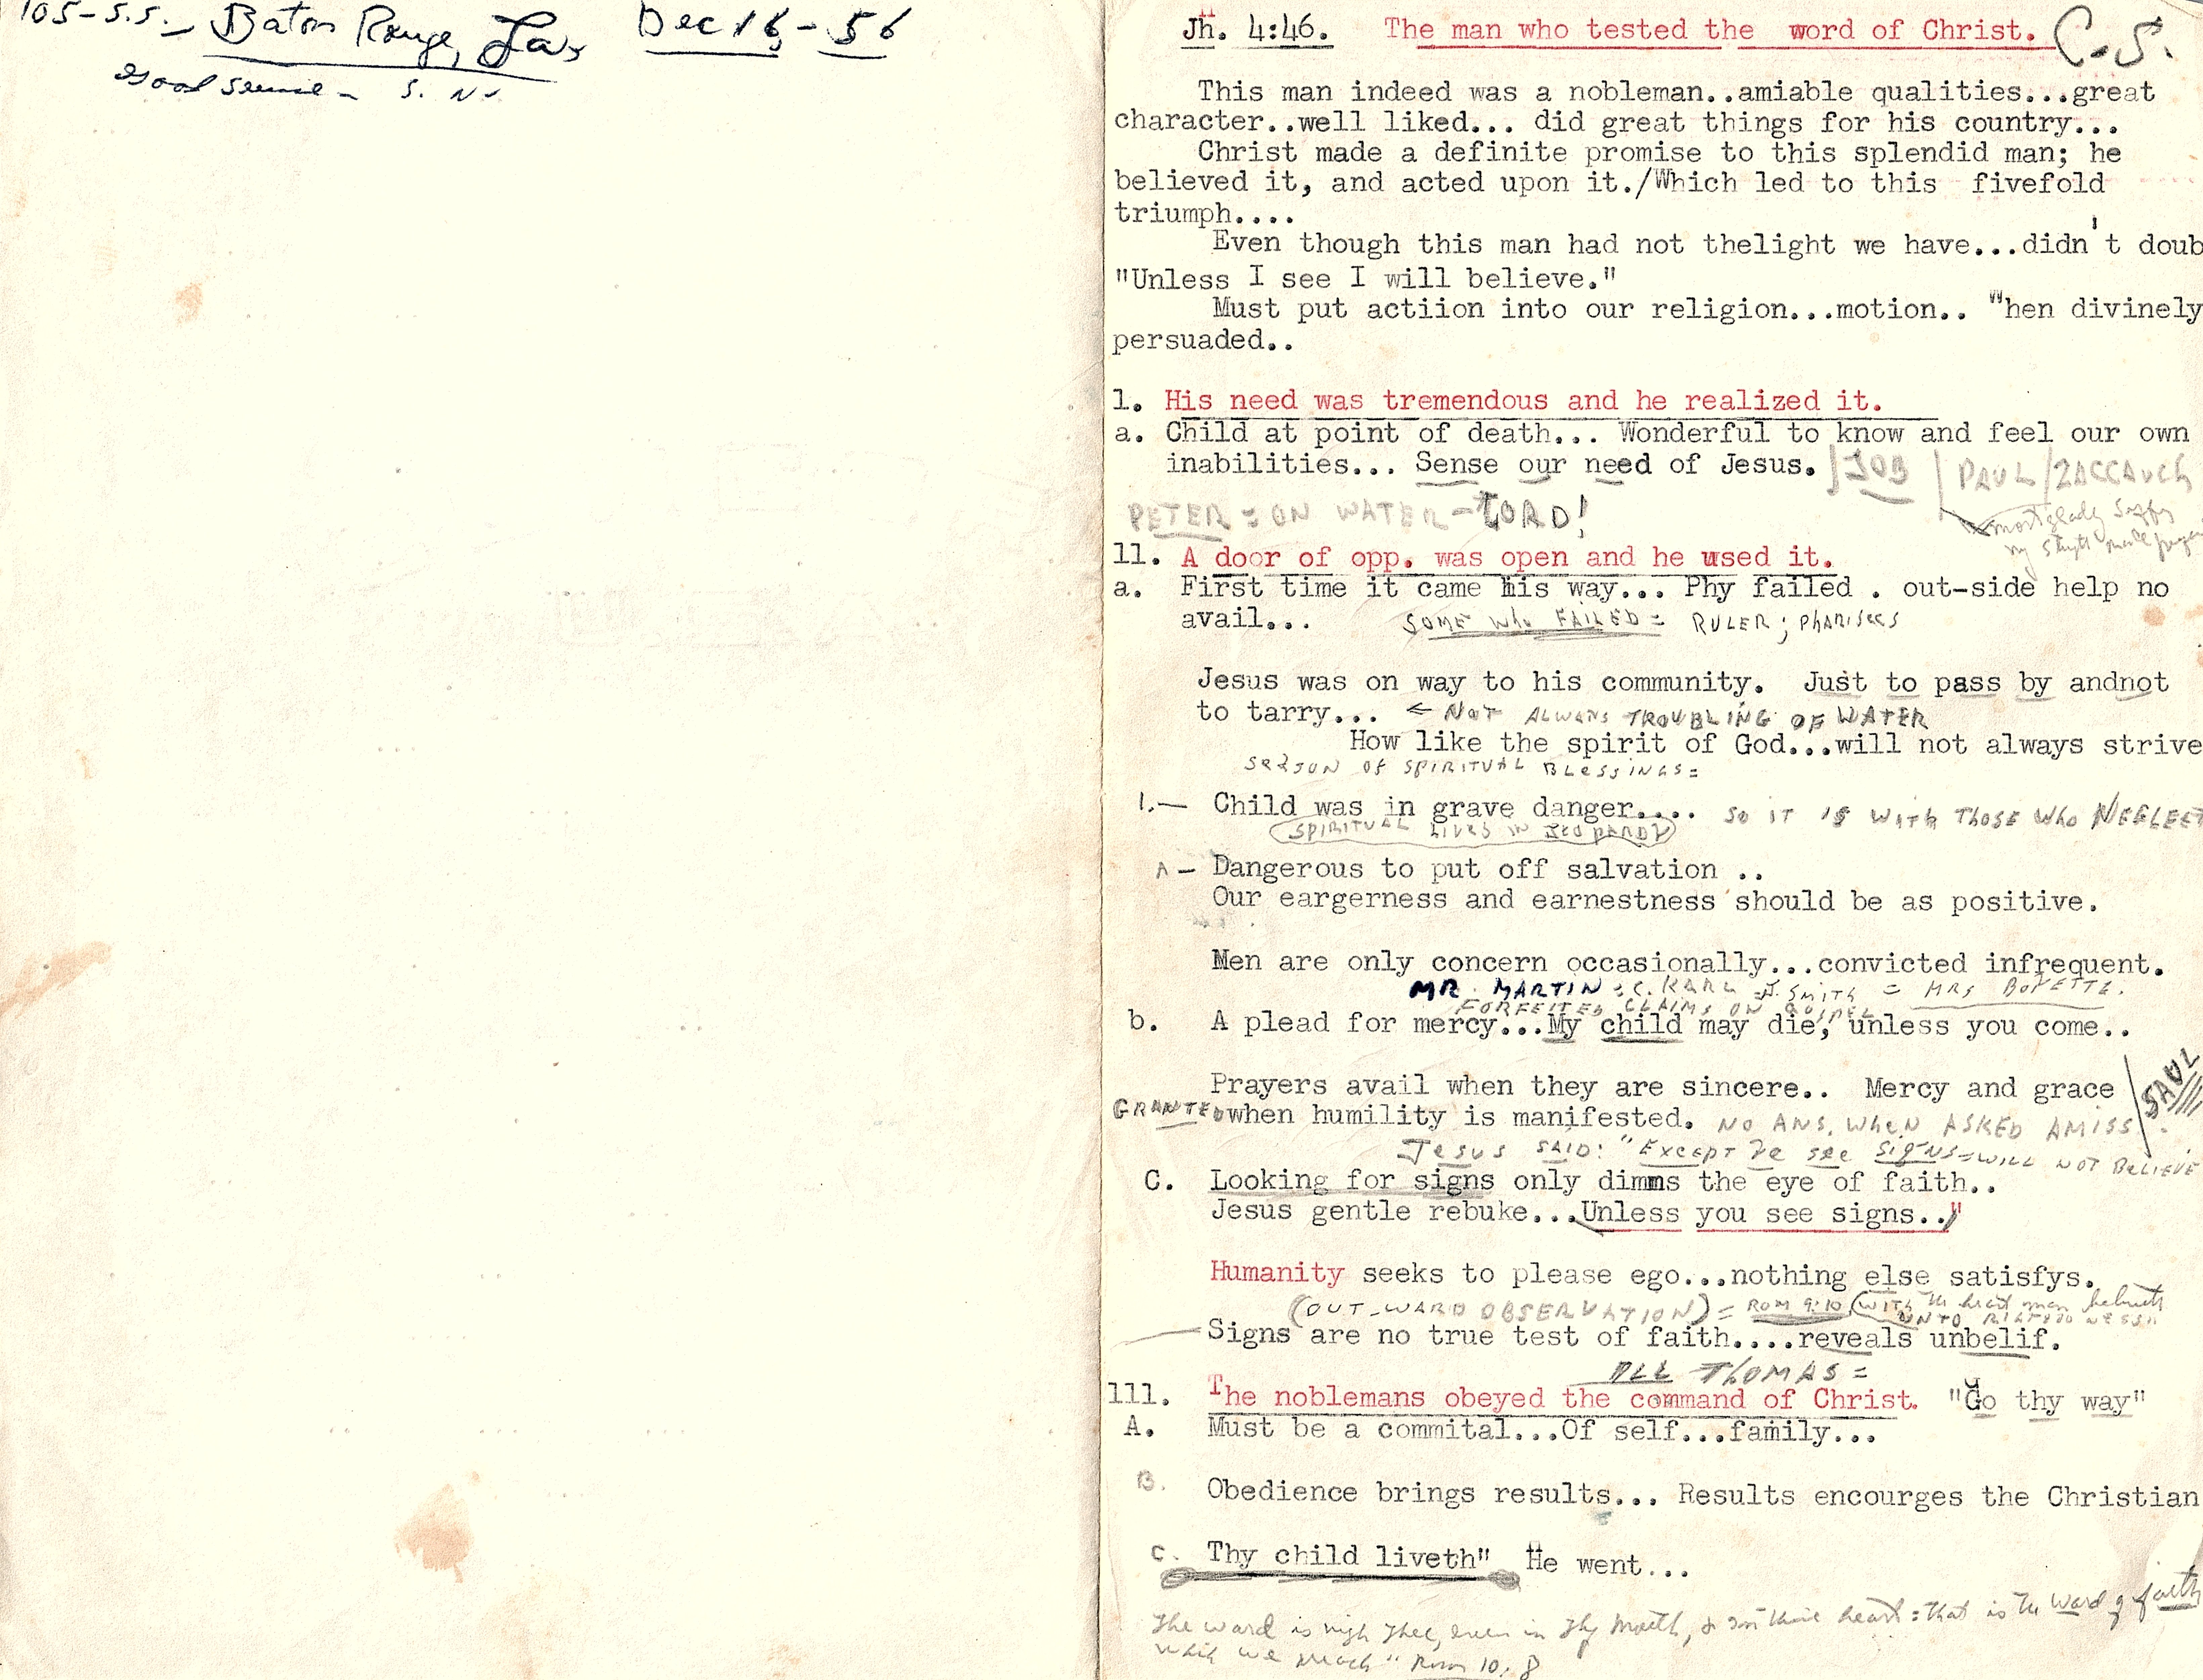 105-S.S. - Baton Rouge, La, Dec 16, - 56
Good service - S. N.
Jh. 4:46. The man who tested the word of Christ. C.S.
This man indeed was a nobleman..amiable qualities...great
character..well liked... did great things for his country...
Christ made a definite promise to this splendid man; he
believed it, and acted upon it./Which led to this fivefold
triumph....
Even though this man had not thelight we have...didn't doub
"Unless I see I will believe."
Must put actiion into our religion...motion.. "hen divinely
persuaded..
1. His need was tremendous and he realized it.
a. Child at point of death... Wonderful to know and feel our own
inabilities... Sense our need of Jesus. | JOB | PAUL / ZACCAUCH
PETER = ON WATER - LORD!
most gladly
my
11. A door of opp. was open and he used it.
a. First time it came his way... Phy failed . out-side help no
avail... SOME WHO FAILED = RULER; PHARISEES
Jesus was on way to his community. Just to pass by andnot
to tarry... ← NOT ALWAYS TROUBLING OF WATER
How like the spirit of God...will not always strive
SEASON OF SPIRITUAL BLESSINGS =
1.— Child was in grave danger.... SO IT IS WITH THOSE WHO NEGLECT
(SPIRITUAL LIVES IN JEOPARDY)
A — Dangerous to put off salvation ..
Our eargerness and earnestness should be as positive.
Men are only concern occasionally...convicted infrequent.
MR. MARTIN : C. KARL = J. SMITH = MRS BOYETTE.
FORFEITED CLAIMS ON GOSPEL
b. A plead for mercy...My child may die, unless you come..
Prayers avail when they are sincere.. Mercy and grace / SAUL
GRANTED when humility is manifested. NO ANS. WHEN ASKED AMISS.
JESUS SAID: "EXCEPT YE SEE SIGNS = WILL NOT BELIEVE
C. Looking for signs only dimms the eye of faith..
Jesus gentle rebuke...Unless you see signs.."
Humanity seeks to please ego...nothing else satisfys.
(OUT-WARD OBSERVATION) = ROM 9:10 (WITH the heart man believeth
UNTO RIGHTEOUSNESS"
Signs are no true test of faith....reveals unbelif.
ALL THOMAS =
111. The noblemans obeyed the command of Christ. "Go thy way"
A. Must be a commital...Of self...family...
B. Obedience brings results... Results encourges the Christian
C. Thy child liveth" He went...
The word is nigh thee, even in thy mouth, & in thine heart: that is the word of faith
which we preach" Rom 10:8